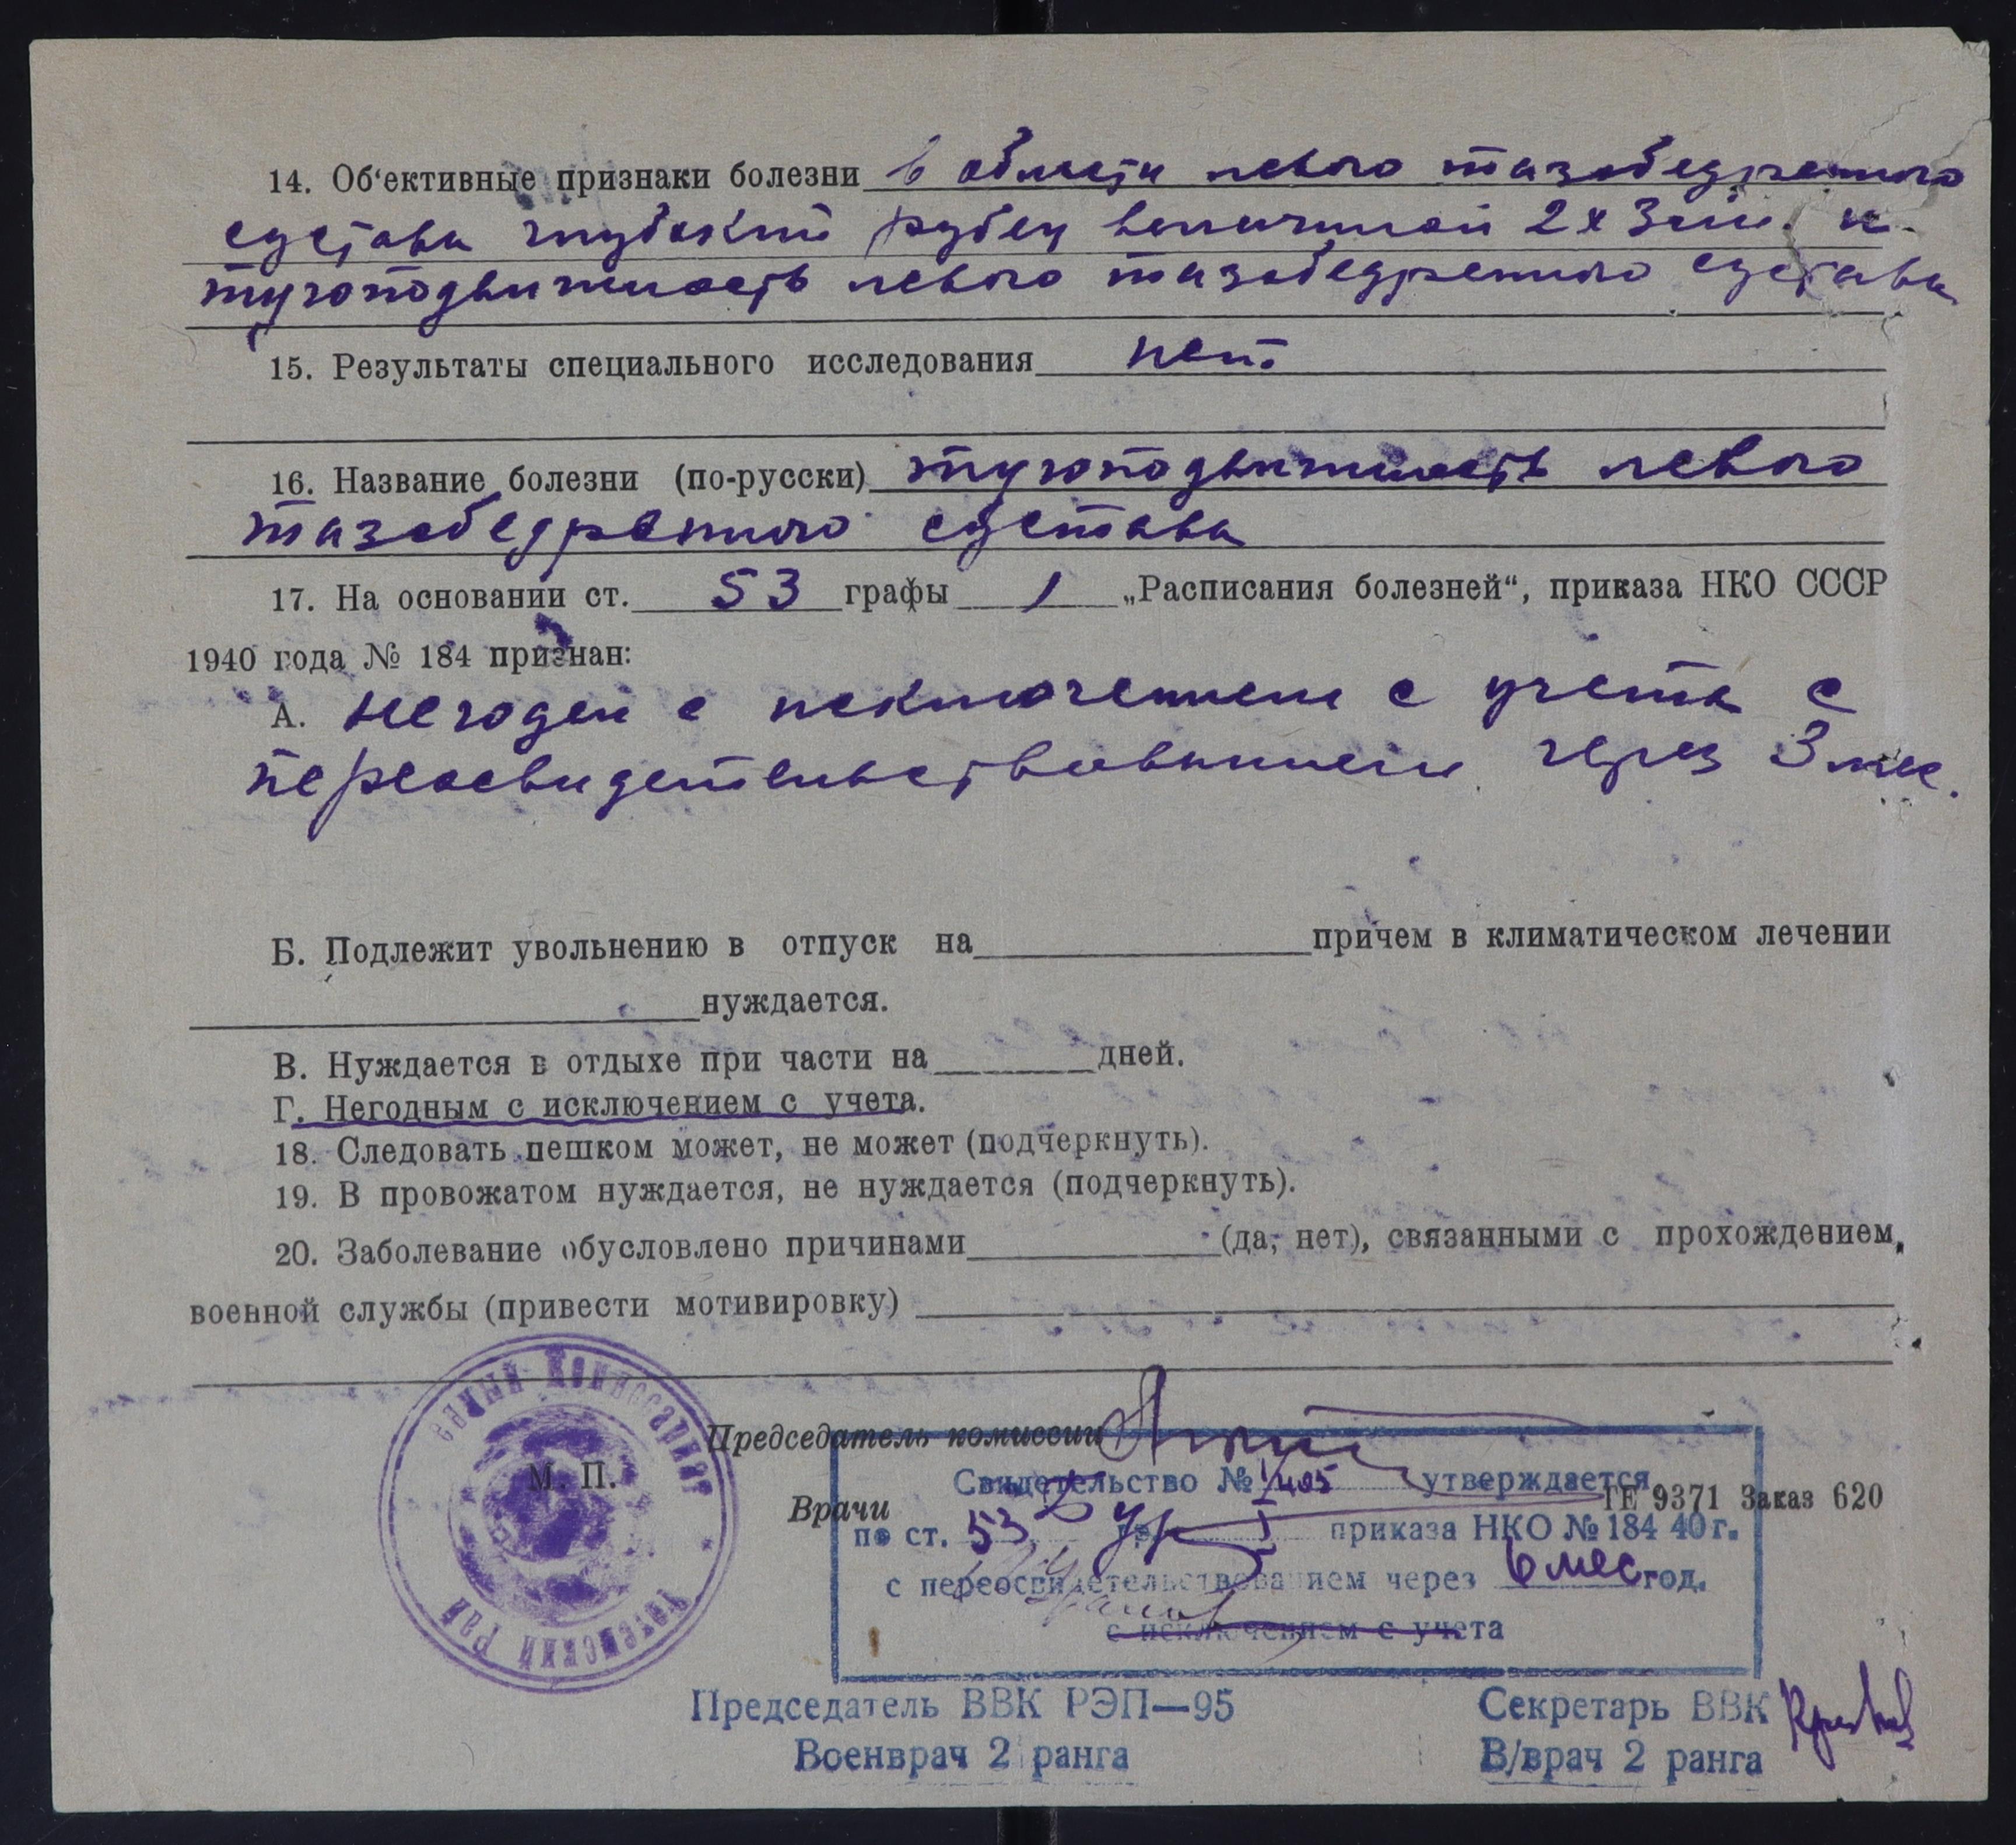 14. Об'ективные признаки болезни в области левого тазобедренного
сустава глубокий рубец величиной 2х3 см. и
тугоподвижность левого тазобедренного сустава
15. Результаты специального исследования нет
16. Название болезни (по-русски) тугоподвижность левого
тазобедренного сустава
17. На основании ст. 53 графы 1 „Расписания болезней“, приказа НКО СССР
1940 года № 184 признан:
А. Не годен с исключением с учета с
переосвидетельствованием через 3 мес.
Б. Подлежит увольнению в отпуск на причем в климатическом лечении
нуждается.
В. Нуждается в отдыхе при части на дней.
Г. Негодным с исключением с учета.
18. Следовать пешком может, не может (подчеркнуть).
19. В провожатом нуждается, не нуждается (подчеркнуть).
20. Заболевание обусловлено причинами (да, нет), связанными с прохождением,
военной службы (привести мотивировку)
Комиссариат
Тотемский Рай
М. П.
Председатель комиссии
Врачи
ТЕ 9371 Заказ 620
Свидетельство № 1/405 утверждается
по ст. 53 гр. I приказа НКО № 184 40 г.
с переосвидетельствованием через 6 мес год.
с исключением с учета
Председатель ВВК РЭП—95 Секретарь ВВК
Военврач 2 ранга В/врач 2 ранга